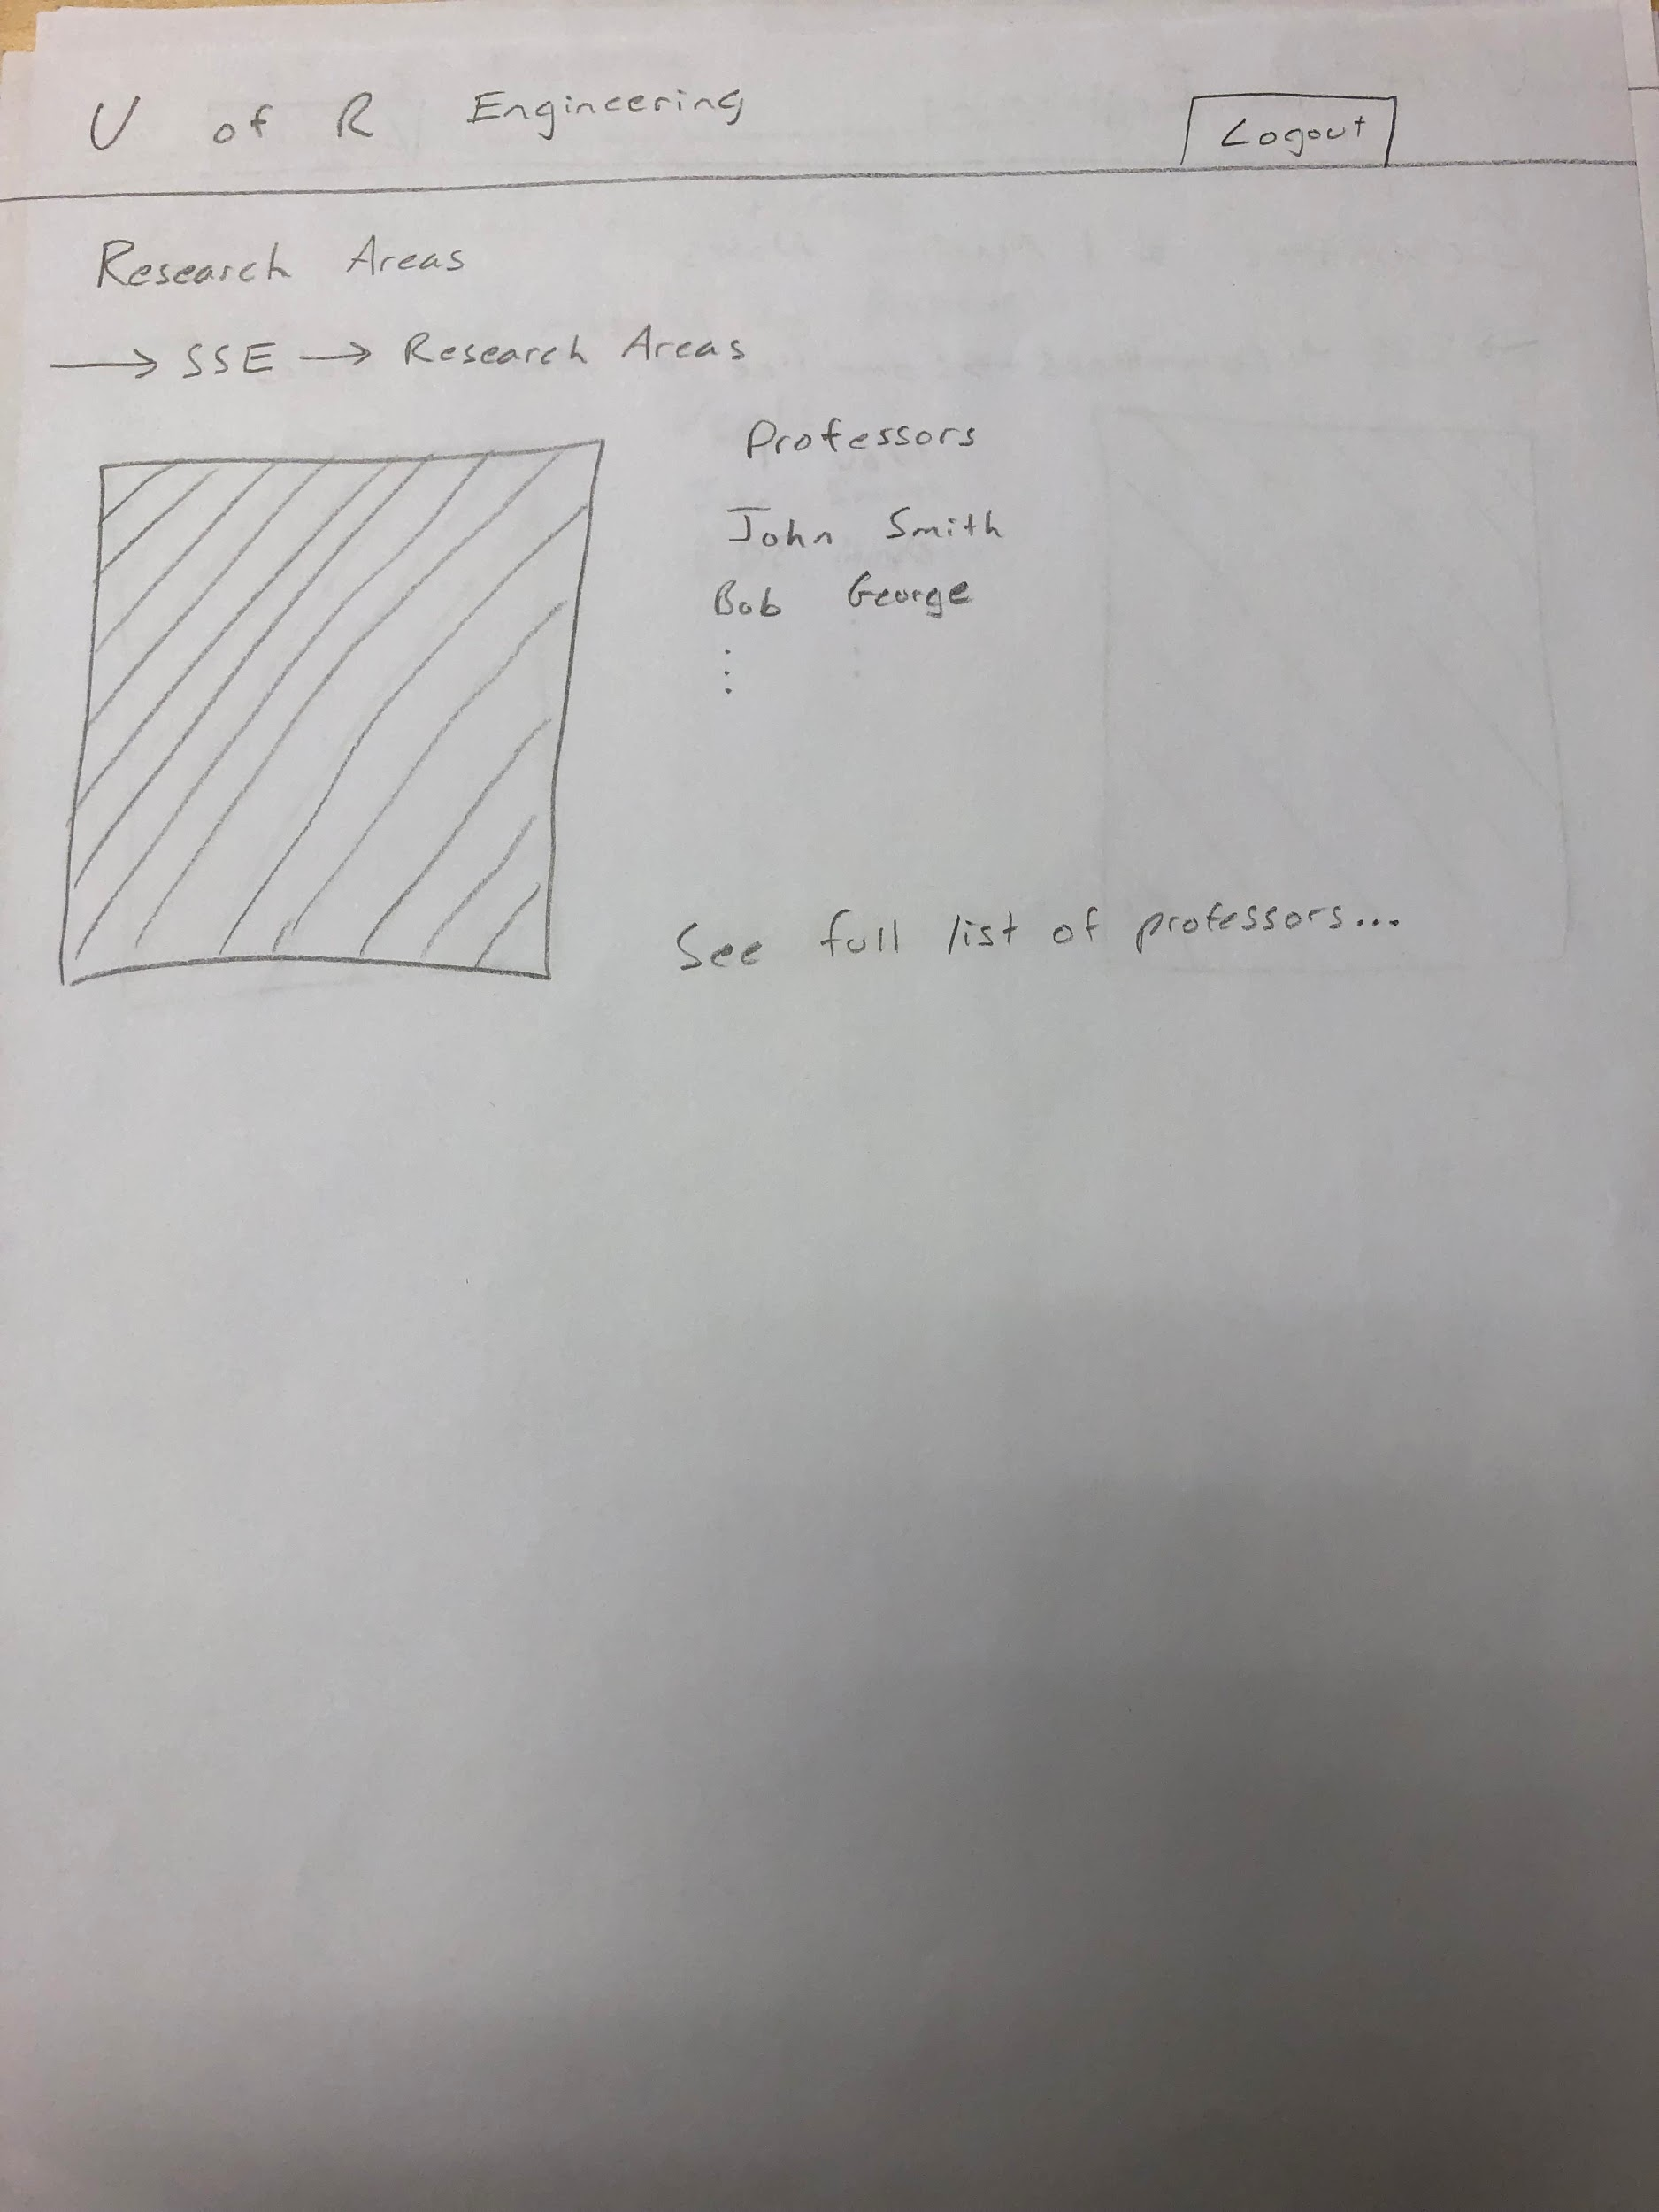 U of R Engineering
Logout
Research Areas
→ SSE → Research Areas
Professors
John Smith
Bob George
⋮
See full list of professors...